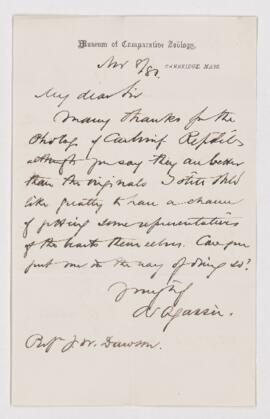 Museum of Comparative Zoölogy,
CAMBRIDGE, MASS.
Nov 8/82
My dear Sir
Many thanks for the
Photog of Carbonif Reptiles
although you say they are better
than the originals I still should
like greatly to have a chance
of getting some representatives
of the themselves. Can you
put me in the way of doing so?
Yours truly
A Agassiz.
Prof J. W. Dawson.